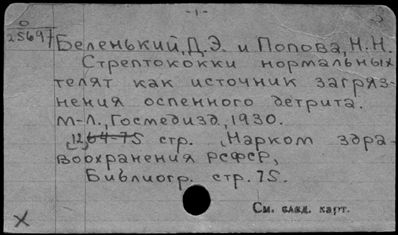 -1-
25697
Беленький, Д.Э. и Попова, Н.Н.
Стрептококки нормальных
телят как источник загряз-
нения оспенного детрита.
М-Л., Госмедизд, 1930.
64-75 стр. (Нарком здра-
воохранения РСФСР,
Библиогр. стр. 75.
См. след. карт.
X